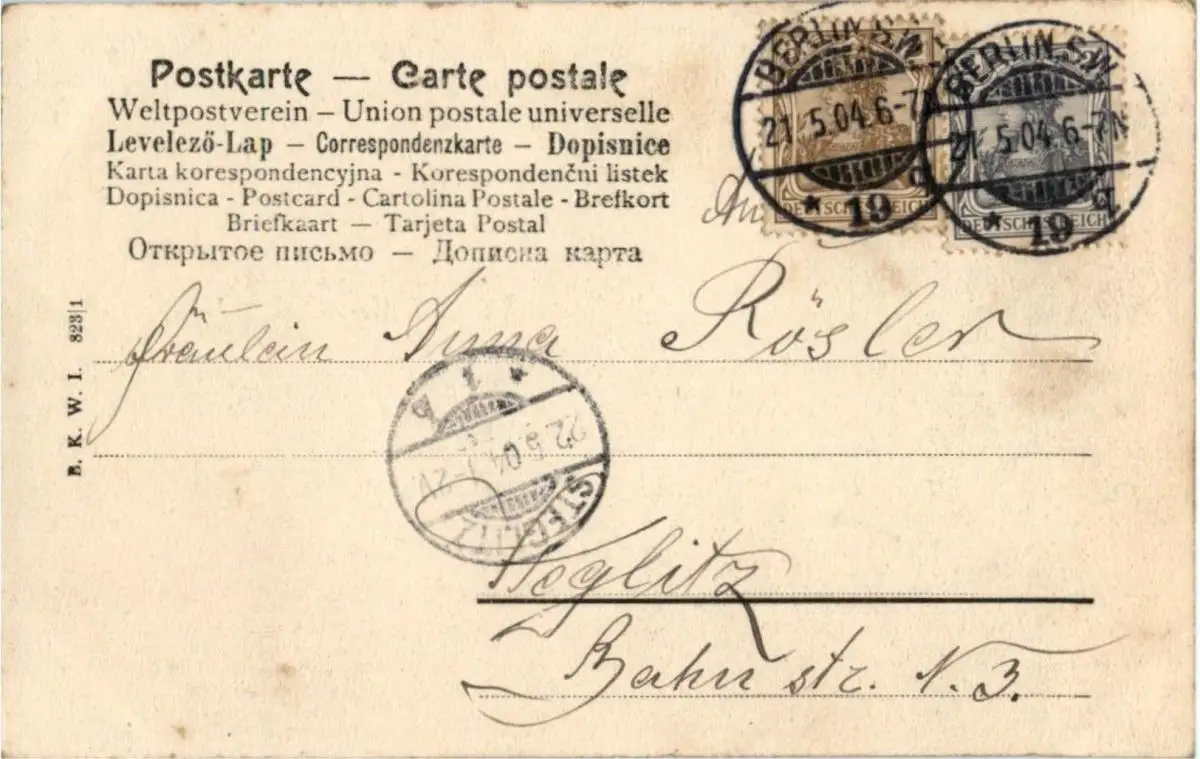 Postkarte — Carte postale
Weltpostverein – Union postale universelle
Levelező-Lap – Correspondenzkarte – Dopisnice
Karta korespondencyjna - Korespondenčni listek
Dopisnica - Postcard - Cartolina Postale - Brefkort
Briefkaart — Tarjeta Postal
Открытое письмо — Дописна карта
BERLIN SW
21 5.04.6-7N
* 19 q
DEUTSCHES REICH
BERLIN SW
21 5 04 6-7N
* 19 q
DEUTSCHES REICH
An
Fräulein Anna Rösler
STEGLITZ
22.5.04
* 1 q
Steglitz
Bahnstr. N. 3.
B. K. W. I. 823|1